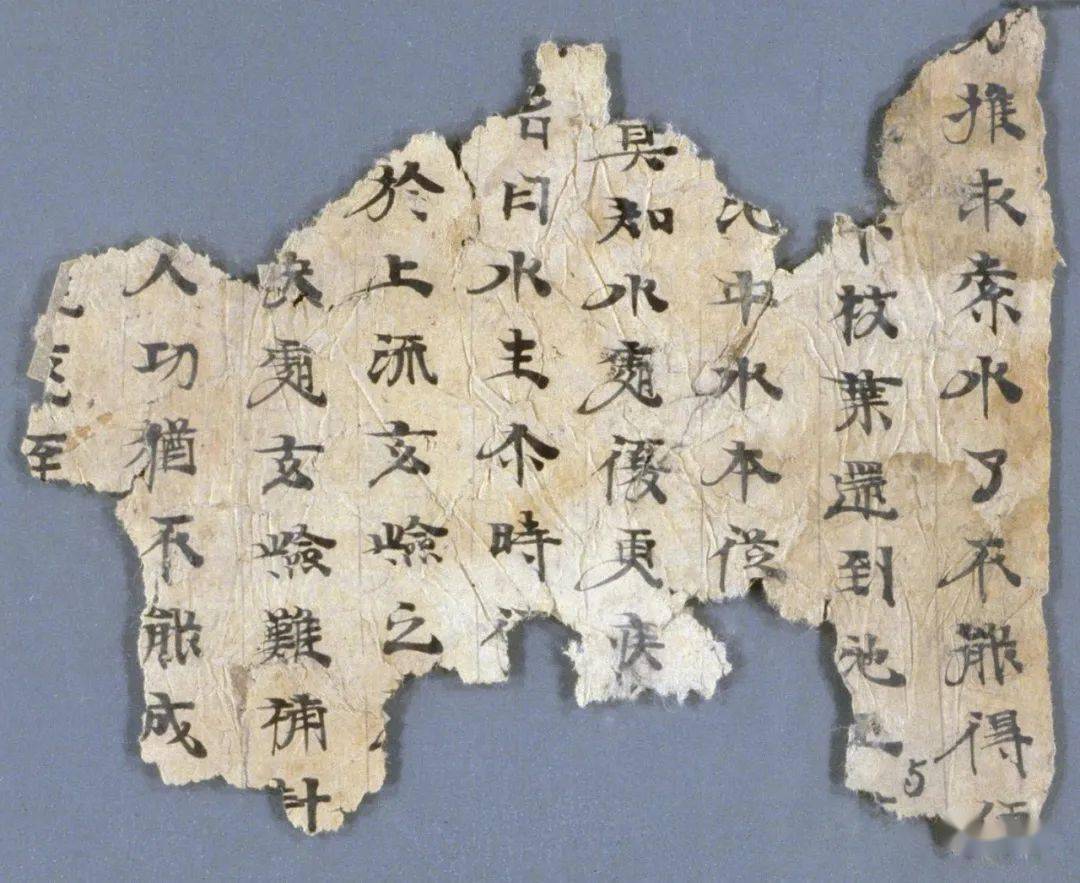 推求索水了不能得
枝葉還到池
中水本從
知水處復更疾
曰水生尒時
於上流玄嶮之
決處玄嶮難補計
人功猶不能成
至
5